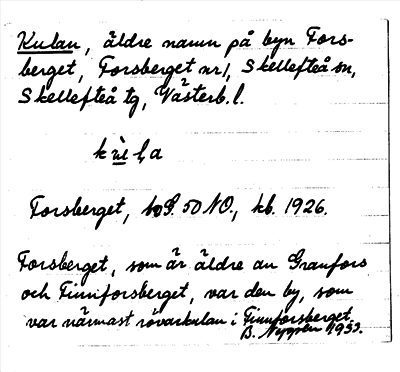 Kulan, äldre namn på byn Fors-
berget, Forsberget nr 1, Skellefteå sn,
Skellefteå tg, Västerb. l.
Forsberget, 50 NO., kb. 1926.
Forsberget, som är äldre än Granfors
och Finnforsberget, var den by, som
var närmast rövarkulan i Finnforsberget.
B. 1953.